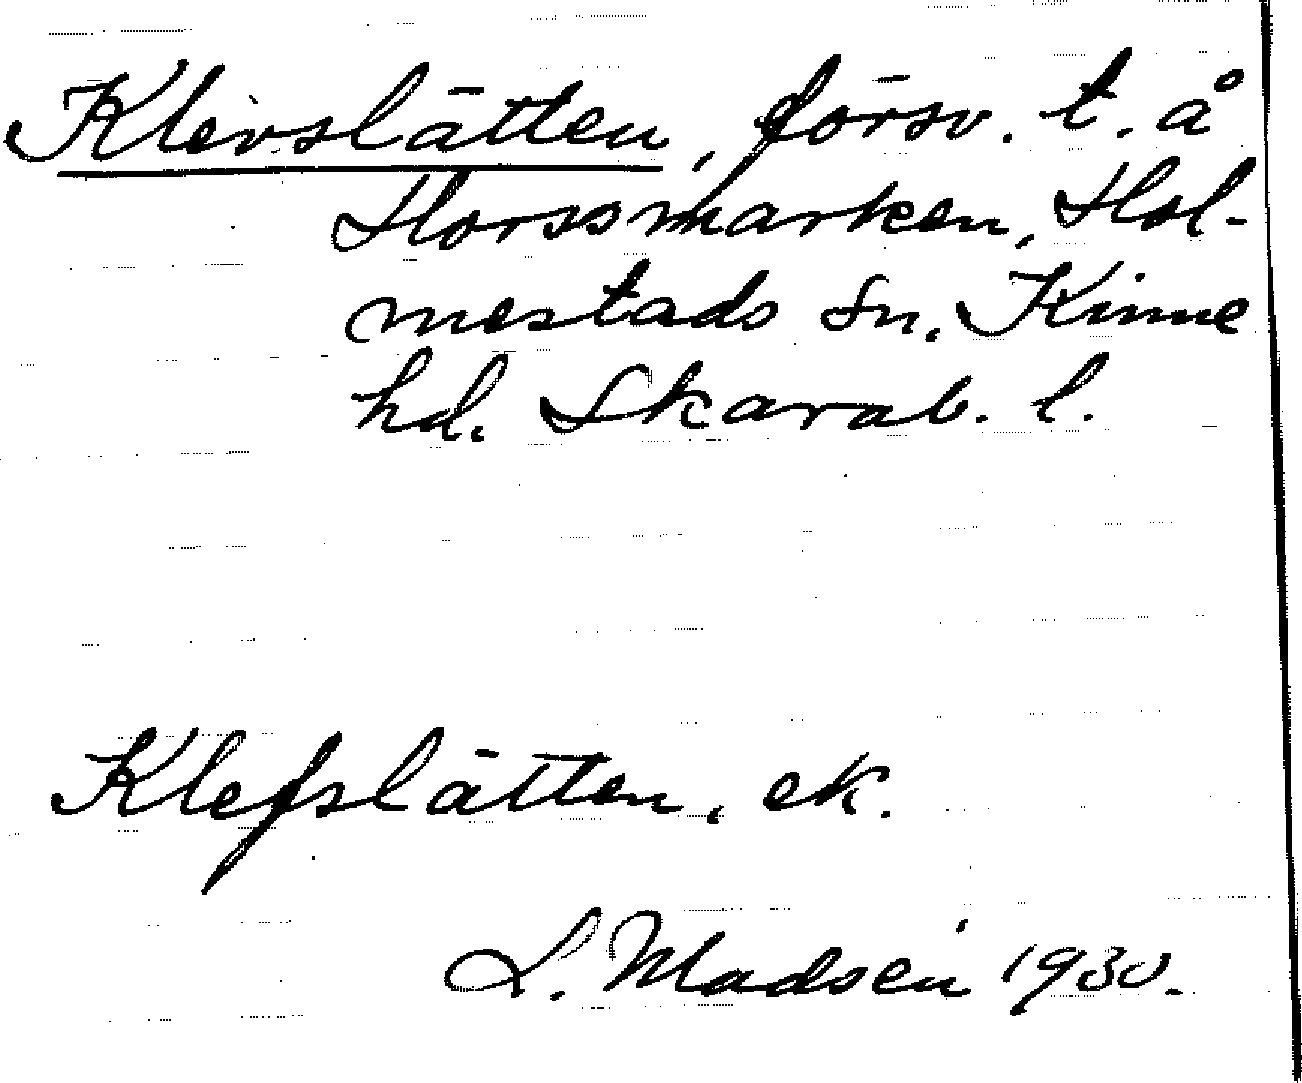 Klevslätten, försv. t. å
Horssmarken, Hol-
mestads sn, Kinne
hd. Skarab. l.
Klefslätten, ek.
L. Madsén 1930.